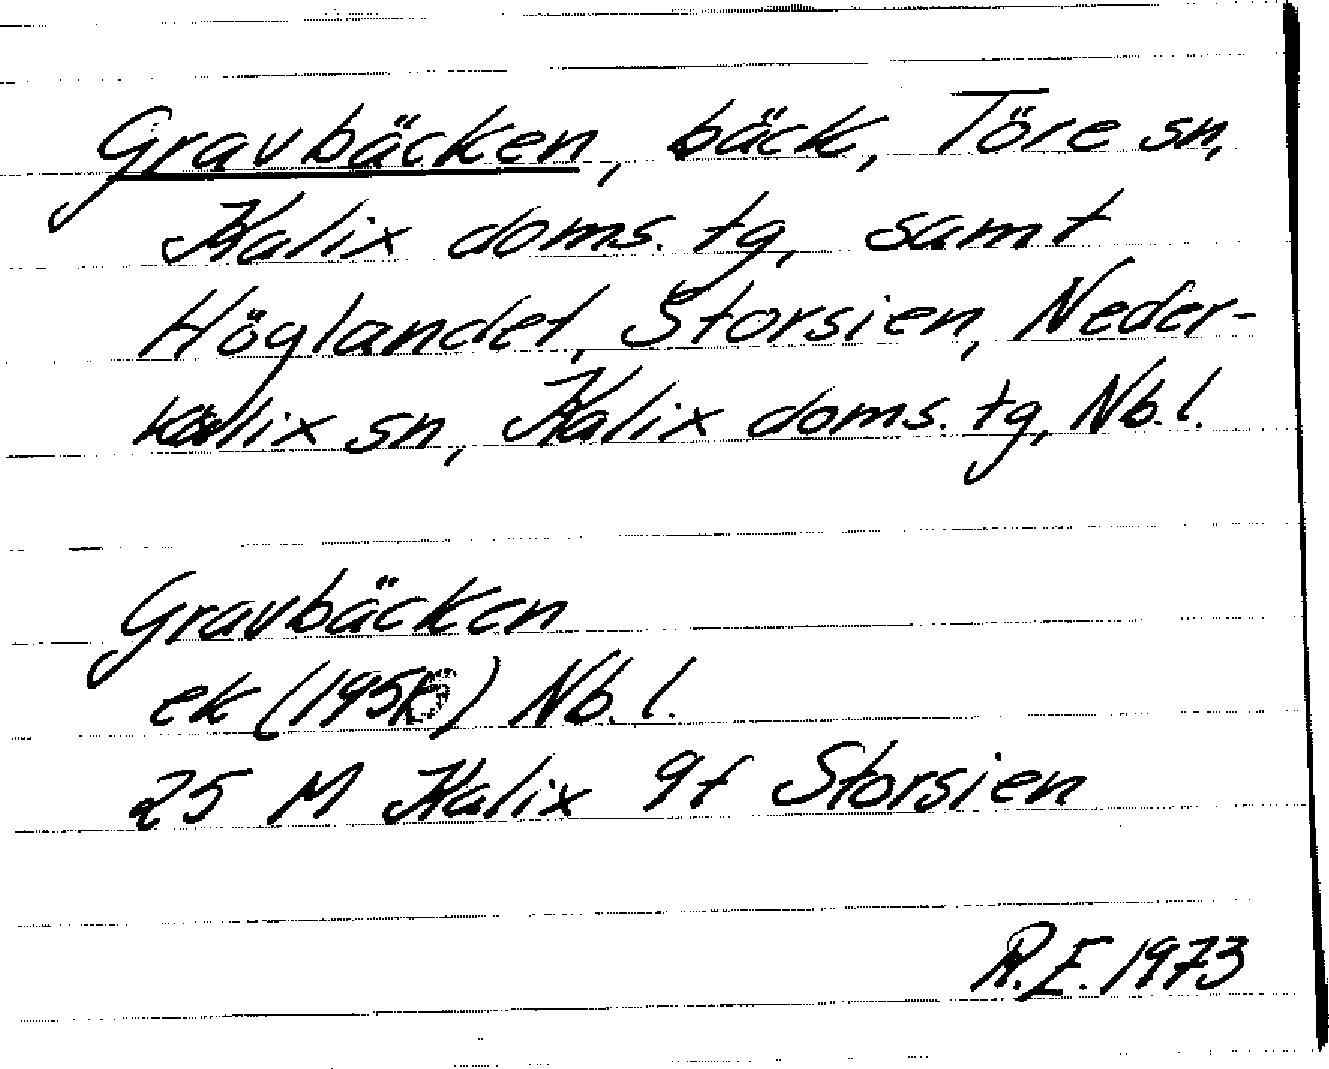 Gravbäcken, bäck, Töre sn,
Kalix doms. tg, samt
Höglandet, Storsien, Neder-
kalix sn, Kalix doms. tg, Nb. l.
Gravbäcken
ek Nb. l.
25 M Kalix 9f Storsien
R.E. 1973